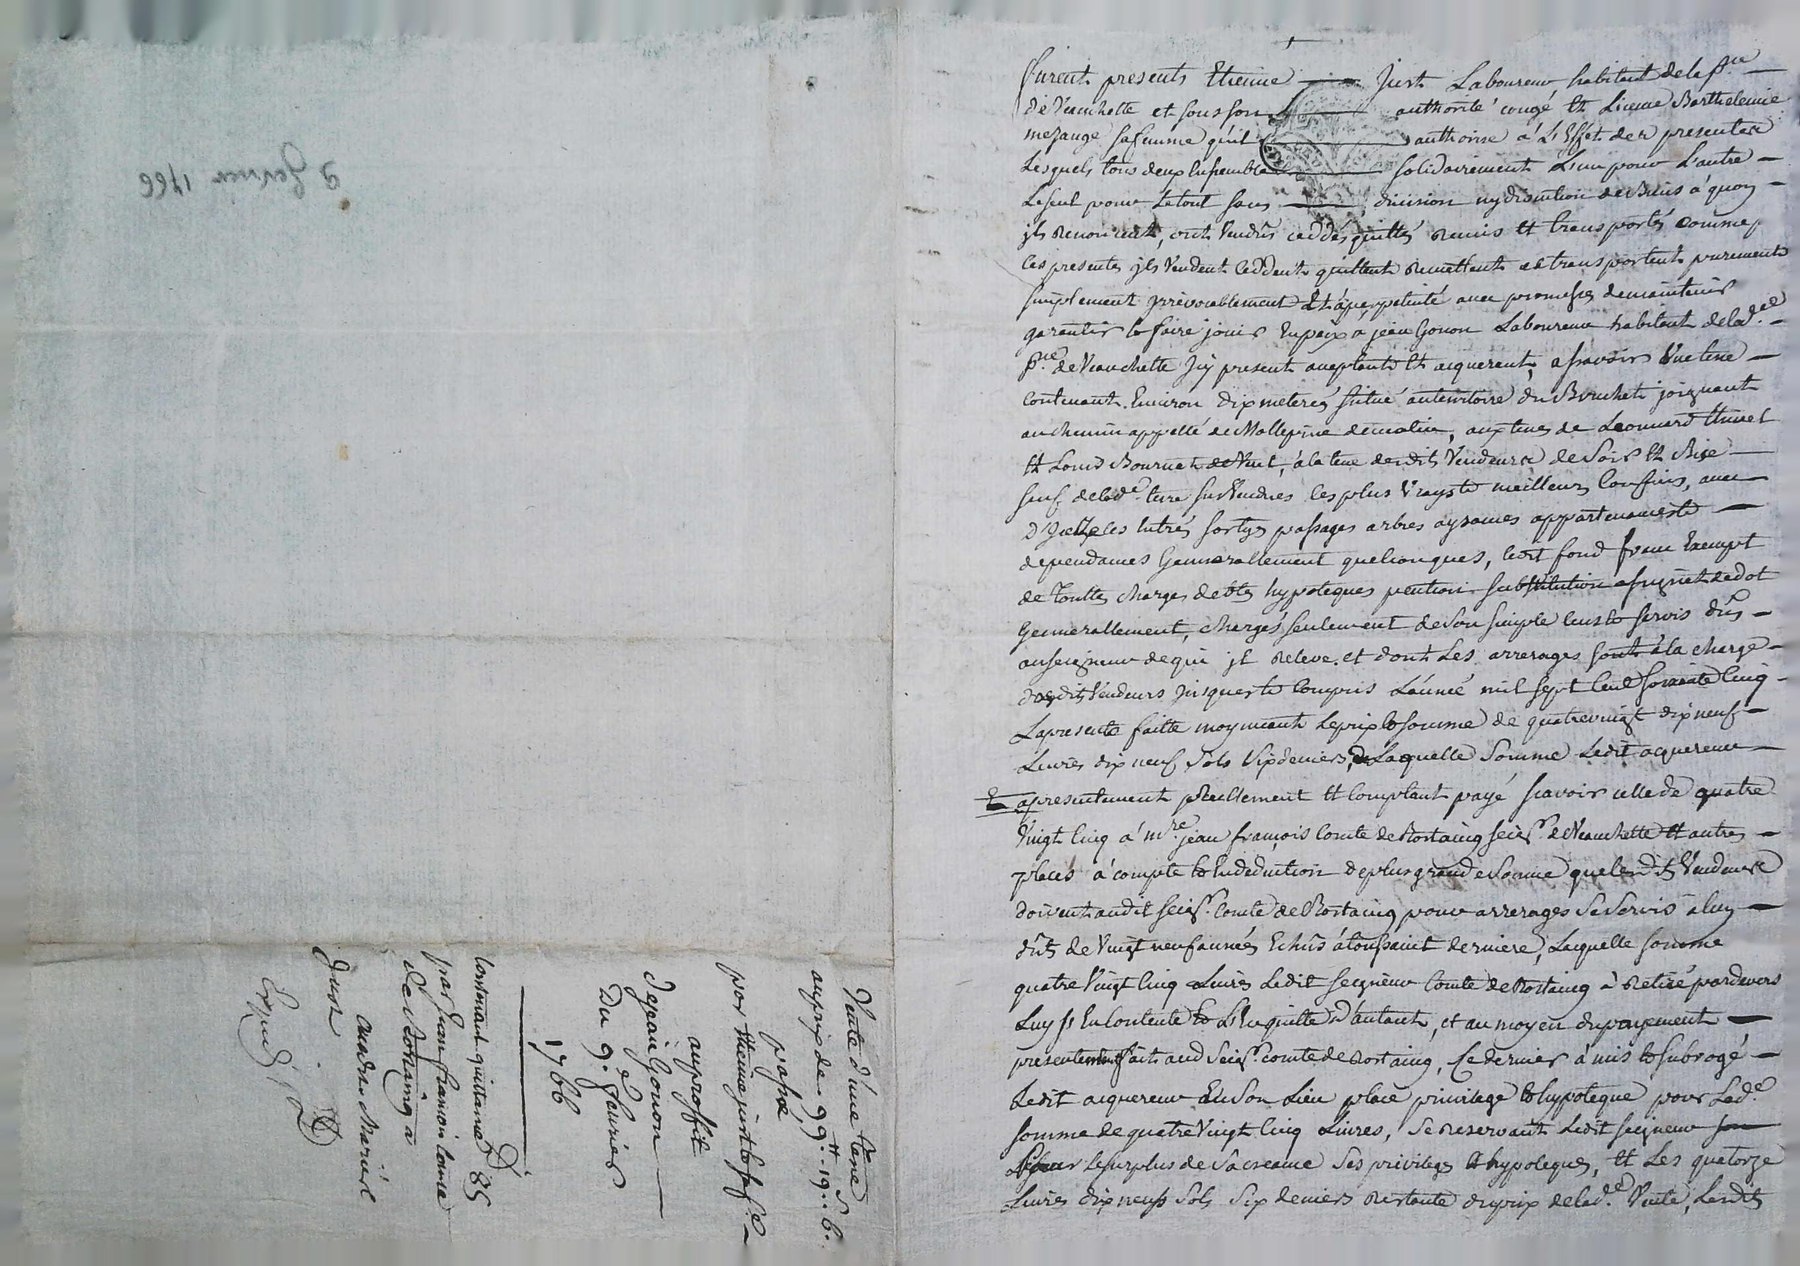 furent presents Etienne Just Laboureur habitant de la p.sse
de Veauchette et sous son authorité congé et Licence Barthelemie
mezange sa femme qu'il authorise à L'Effet des presentes
Lesquels tous deux Ensemble solidairement L'un pour L'autre
Le seul pour Le tout sans division ny discution de Biens à quoy
jls Renoncent, ont Vendus ceddés quittés Remis et transportés comme
ces presentes jls Vendent Ceddent quittent Remettent et transportent purement
simplement jrrevocablement Et à perpetuité avec promesses de maintenir
garantir et faire jouir En paix a jean Gonon Laboureur habitant de lad.e
p.sse de Veauchette Jcy present acceptant et acquerent, a sçavoir Une terre
Contenant Environ dix meterés situé au territoire du Bruchet joignant
au chemin appellé de Mallepine de matin, aux terres de Leonnard
et Louis Bournat de Vent, à la terre desdits Vendeurs de Soir et Bize
sauf de lad.e terre sus Vendues les plus Vrays et meilleurs Confins, avec
d'Jcelles Entrés sortys passages arbres aysances appartenances et
dependances Generallement quelconques, ledit fond franc Exempt
de touttes charges debtes hypoteques pention substitution assignat de dot
Generallement, chargés seulement de son simple cens et servis dûs
au seigneur de qui jl Releve et dont Les arrerages sont à la charge
desdits Vendeurs jusques et Compris L'année mil sept Cent soixante Cinq
La presente faitte moyennant Le prix et somme de quatrevingt dix neuf
Livres dix neuf Sols six deniers, de Laquelle Somme Ledit acquereur
a presentement reellement et Comptant payé scavoir celle de quatre
Vingt Cinq à m.re jean françois Comte de Rostaing seig.r de Veauchette et autres
places à compte et En deduction de plus grande Somme que lesdits Vendeurs
doivent audit seig.r Comte de Rostaing pour arrerages de Servis a luy
dûs de Vingt neuf années Echûs à toussaint derniere, Laquelle somme
quatre Vingt Cinq Livres Ledit seigneur Comte de Rostaing à Retiré pardevers
Luy s'En Contente et L'En quitte d'autant, et au moyen du payement
presentement fait aud Seig.r comte de Rostaing, Ce dernier à mis et subrogé
Ledit acquereur En Son Lieu place privilege et hypoteque pour Lad.e
somme de quatre Vingt Cinq Livres, Se Reservant Ledit seigneur
pour Le surplus de Sa creance Ses privileges et hypoteques, Et Les quatorze
Livres dix neuf Sols Six deniers Restante du prix de lad.e Vente, Lesdits
Vente d'une terre
au prix de 99tt..19s..6.
passé
par Etienne just et sa f.e
au profit
de jean Gonon
Du 9. fevrier
1766
contenant quittance D 85
par jean francois comte
de Rostaing a
André Marie
Just
Expedié
9 fevrier 1766